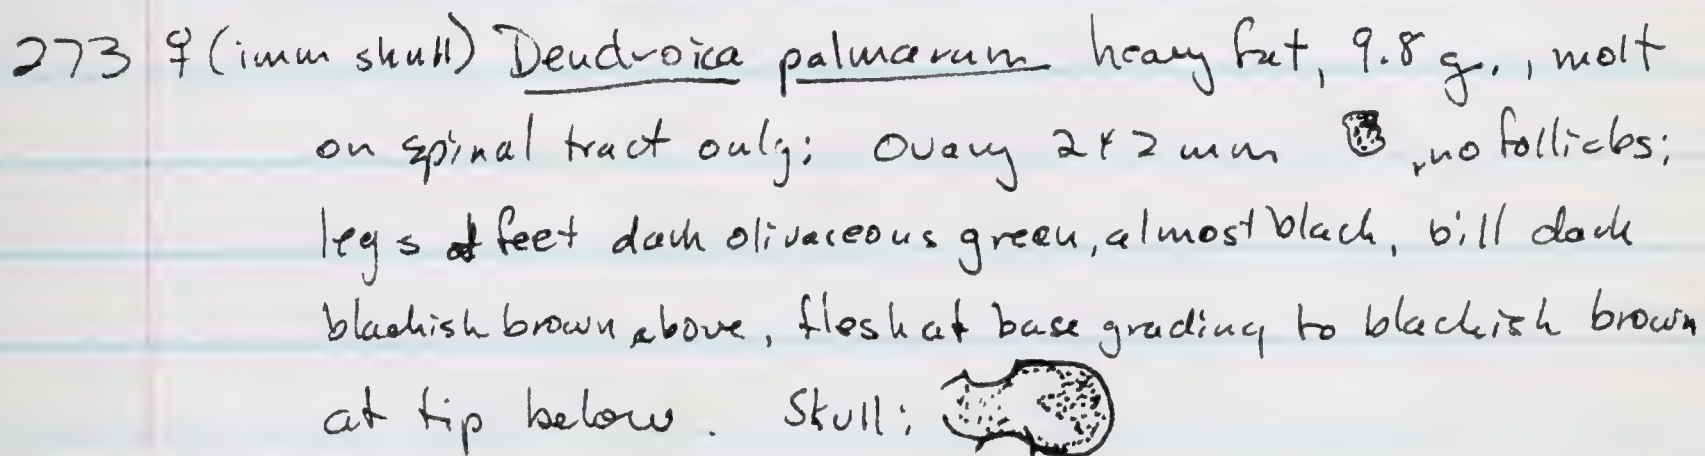 273 ♀ (imm skull) Dendroica palmarum heavy fat, 9.8 g., molt
on spinal tract only; Ovary 2 x 2 mm , no follicles;
legs & feet dark olivaceous green, almost black, bill dark
blackish brown above, flesh at base grading to blackish brown
at tip below. Skull: